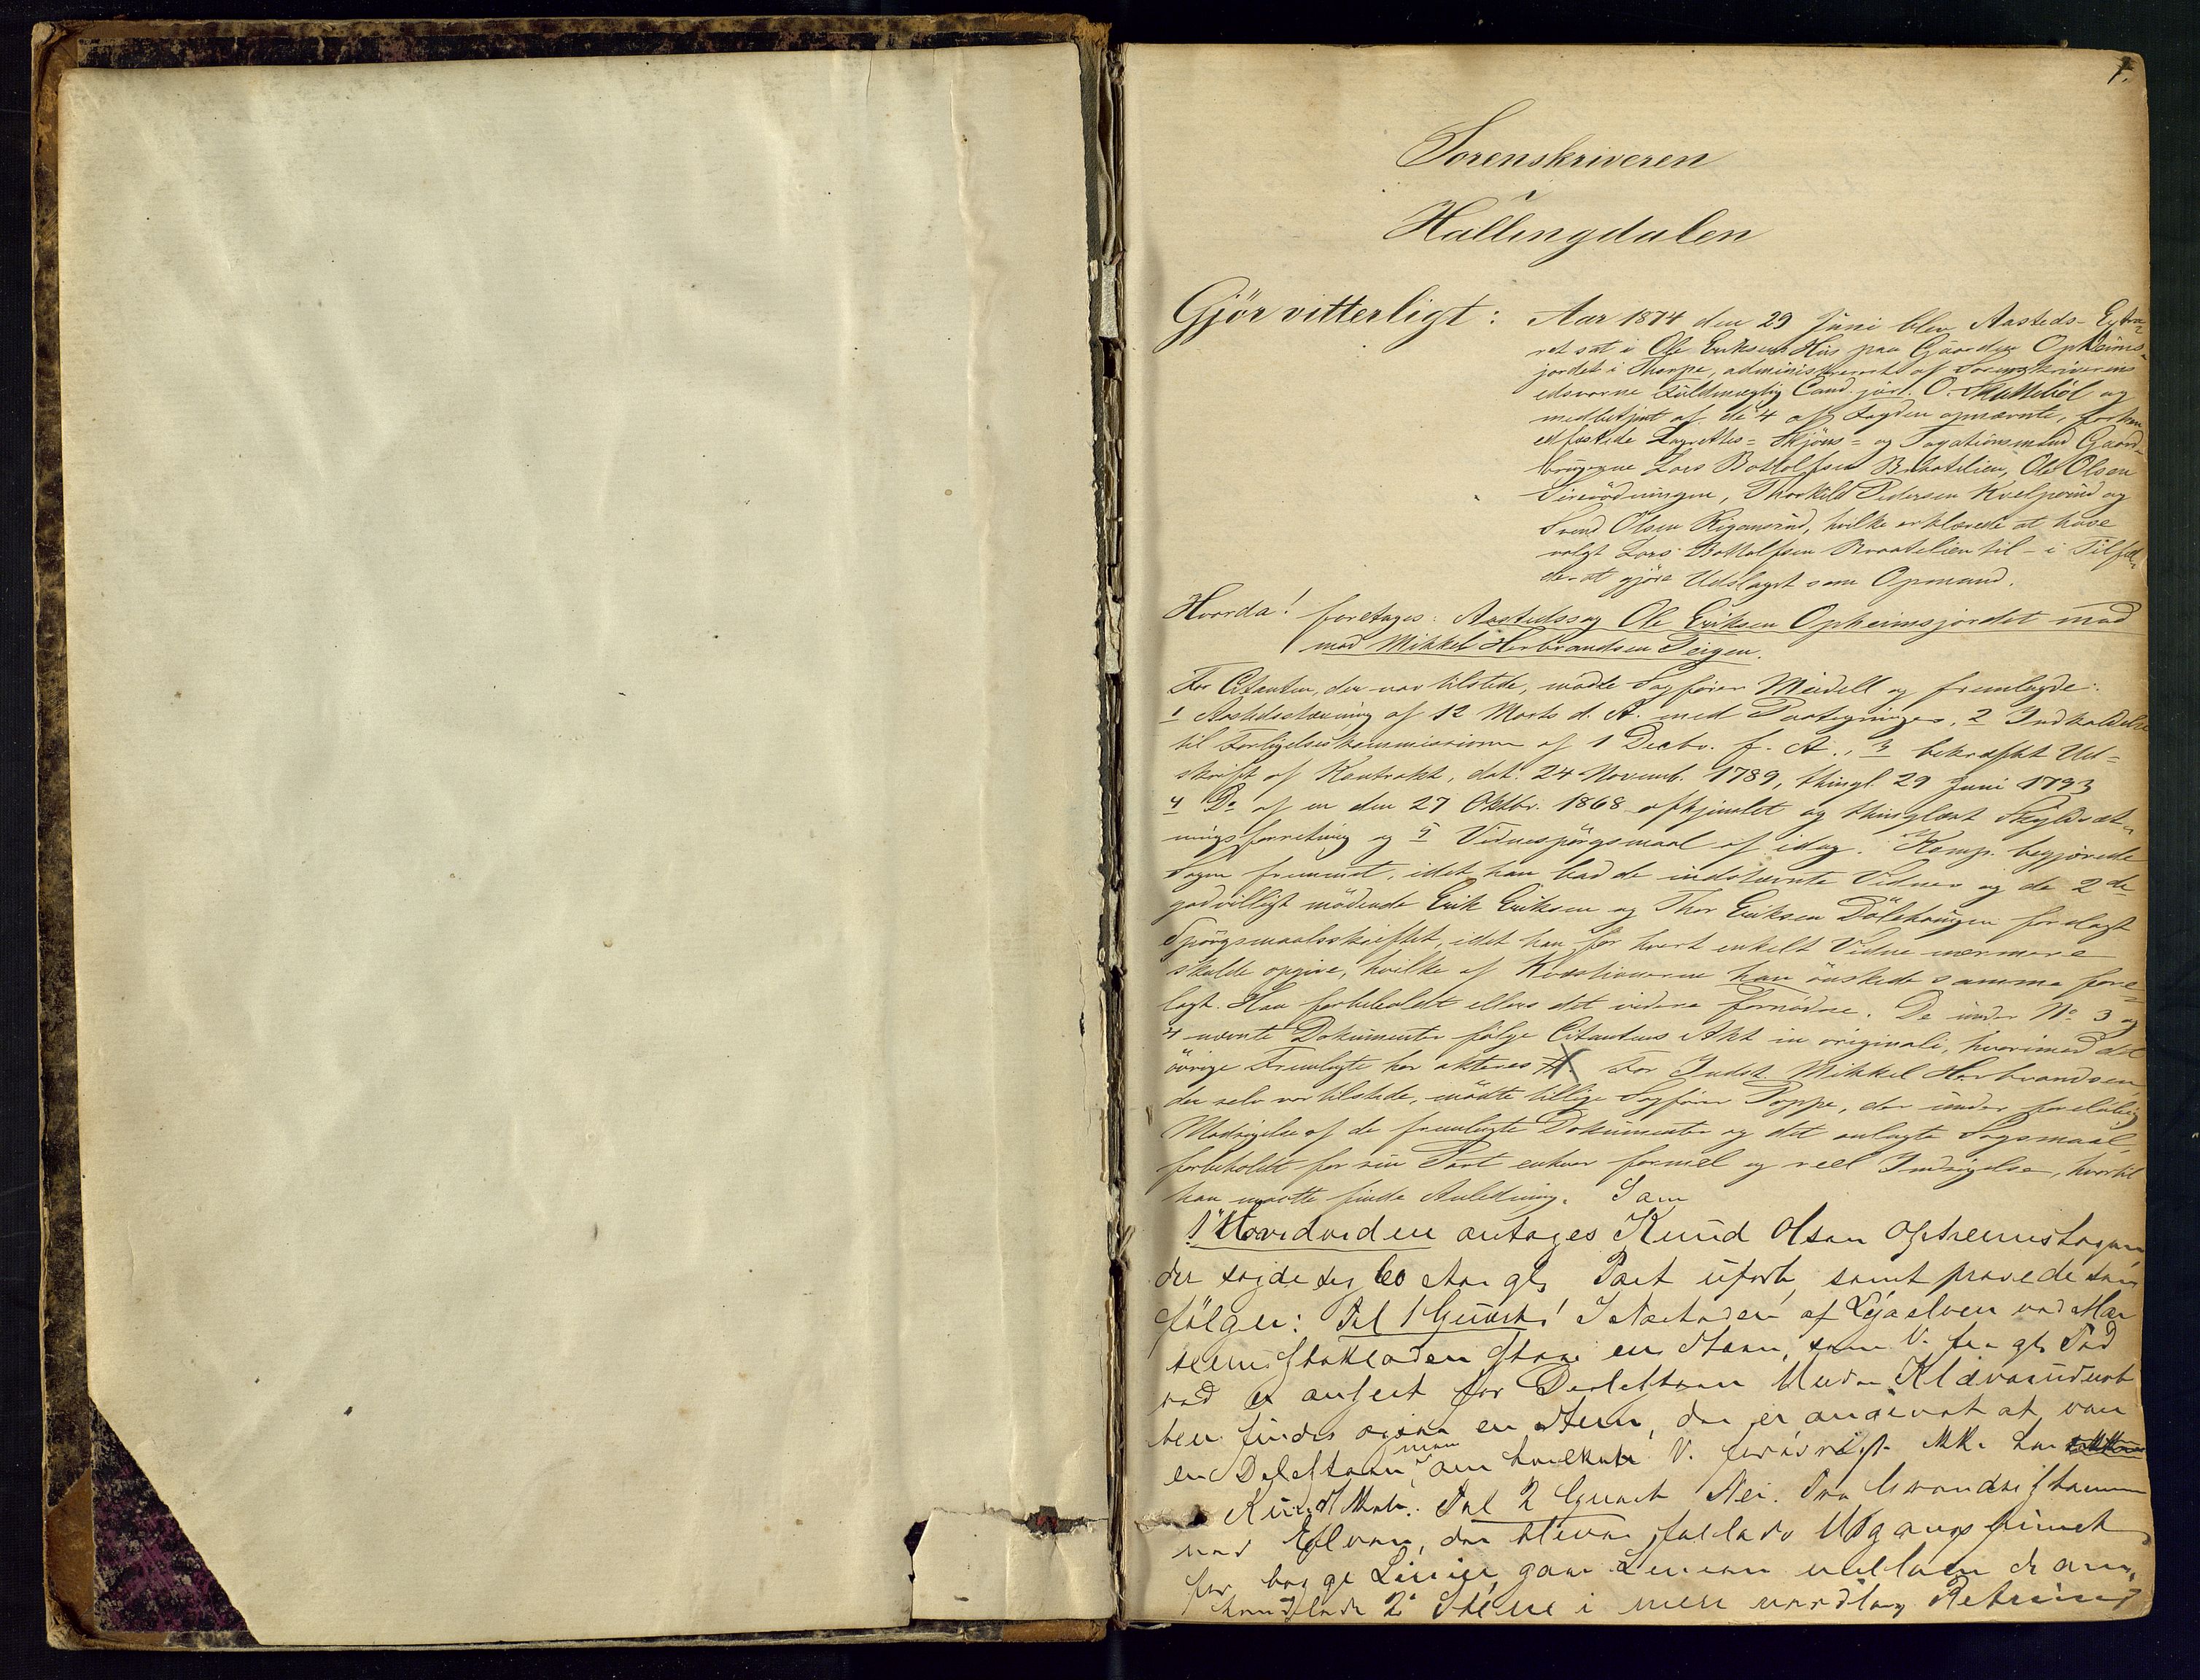 1.
Sorenskriveren
i
Hallingdalen
Gjör vitterligt: Aar 1874 den 29 Juni blev Aasteds-Extra-
ret sat i Ole Eriksens Hus paa Gaarden Opheims-
jordet i Thorpe, administreret af Sorenskriverens
edsvorne Fuldmægtig Cand. jur. O. Skattebøl og
medbetjent af de 4 af Fogden opnævnte,
edfæstede Lagrettes- Skjöns- og Taxationsmænd Gaard-
brugerne Lars Bottolfsen Braatelien, Ole Olsen
, Thorkild Pedersen Kvelprud og
Svend Olsen Rigansrud, hvilke erklærede at have
valgt Lars Bottolfsen Braatelien til - i Tilfæl-
de - at gjöre Udslaget som Opmand.
Hvorda! foretages: Aastedssag Ole Eriksen Opheimsjordet mod
mod Mikkel Herbrandsen Teigen.
For Citanten, der var tilstede, mödte Sagförer Meidell og fremlagde:
1 Aastedsstævning af 12 Marts d. A. med Paategninger, 2 Indkaldelse
til Forligelseskommissionen af 1 Decbr. f. A., 3 bekræftet Ud-
skrift af Kontrakt, dat. 24 Novemb. 1789, thingl. 29 Juni 1793
4 Do af en den 27 Oktbr. 1868 afhjemlet og thinglæst Skyldsæt-
ningsforretning og 5 Vidnespörgsmaal af idag. Komp. begjærede
Sagen fremmet, idet han bad de indstævnte Vidner og de 2de
godvilligt mödende Erik Eriksen og Thor Eriksen Dölehaugen forelagt
Spörgsmaalsskriftet, idet han for hvert enkelt Vidne nærmere
skulde opgive, hvilke af Kvæstionerne han önskede samme fore-
lagt. Han forbeholdt ellers det videre Fornödne. De under No 3 og
4 nævnte Dokumenter fölge Citantens Akt in originali, hvorimod det
övrige Fremlagte her akteres For Indst. Mikkel Herbrandsen,
der selv var tilstede, mödte tillige Sagförer Poppe, der under forelöbig
Modsigelse af de fremlagte Dokumenter og det anlagte Sagsmaal,
forbeholdt for sin Part enhver formel og reel Indsigelse, hvortil
han maatte finde Anledning. Som
1. Hovedvidne antages Knud Olsen Opheimshagen
der sagde sig 60 Aar gl, Part uforb, samt pravede som
fölger: Til 1 Qvæst! I Nærheden af Lyaelven ved
staar en Steen, som V. fra gl Tid
ved er anseet for Deelesteen
ten findes ogsaa en Steen, der er angivet at være
en Deelesteen, men om hvilken V.
Knud Til 2 Qvæst Nei. Fra
ved Elven, der blev Udgangspunct
for begge Linier, gaar Linien mellem de
2 Stene i mere nordlig Retning